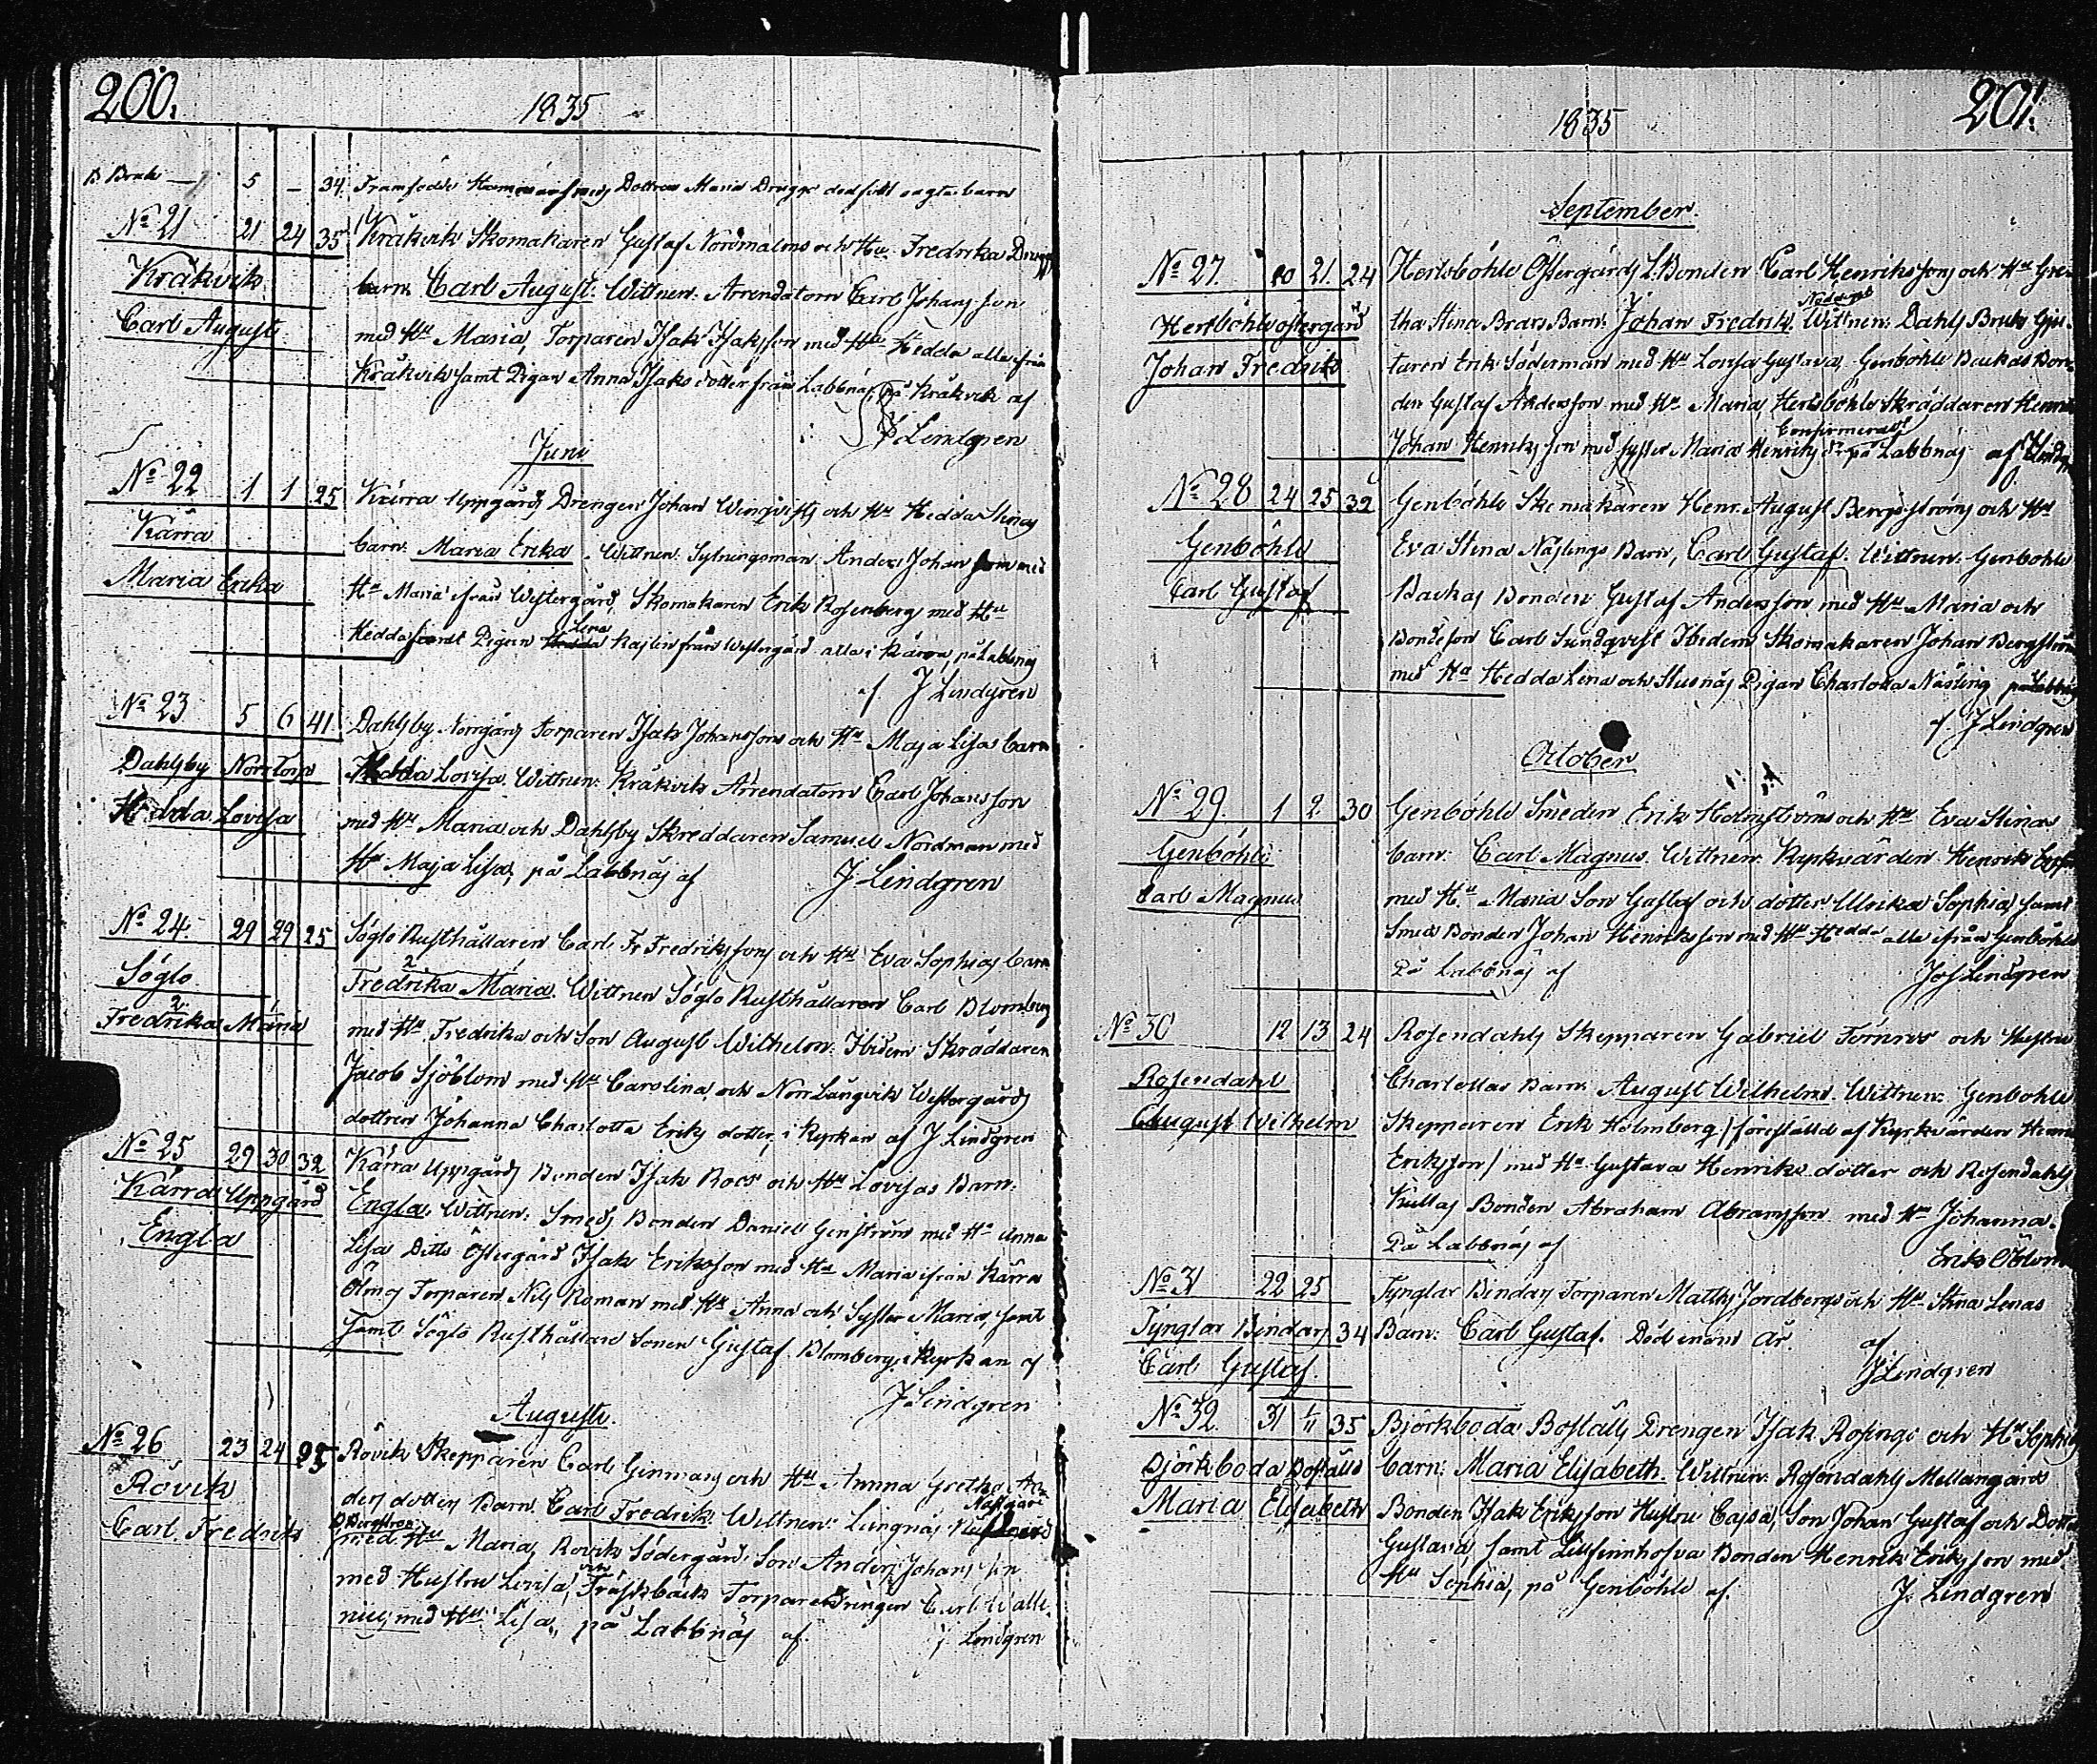 200.
1835
B Bruk — 5 — 34. Framfödde Dottren Maria dödfödt oägta barn
No 21 21 24 35 Kråkvik Skomakaren Gustaf Nordmalms och Hu. Fredrika
Kråkvik barn Carl August. Wittnen: Arrendatorn Carl Johansson
Carl August med Hu Maria, Torparen Isak Isaksson med Hu Hedda alla ifrån
Kråkvik samt Pigan Anna Isaksdotter från Labbnäs, På Kråkvik af
J Lindgren
Juni
No 22 1 1 25 Kärra Uppgårds Drengen Johan Winqvists och Hu Hedda Stinas
Kärra barn: Maria Erika. Wittnen: Sytningsman Anders Johansson med
Maria Erika Hu Maria ifrån Westergård, Skomakaren Erik Rosenberg med Hu
Hedda samt Pigan Lena Kaslin från Westergård alla i Kärra, på Labbnäs
af J Lindgren
No 23 5 6 41 Dahlsby Norrgårds torparen Isak Johanssons och Hu Maja Lisas barn
Dahlsby Norrtorp Hedda Lovisa. Wittnen: Kråkvik Arrendatorn Carl Johansson
Hedda Lovisa med Hu Maria och Dahlsby Skreddaren Samuel Nordman med
Hu Maja Lisa, på Labbnäs af J. Lindgren
No 24. 29 29 25 Söglo Rusthållaren Carl Fr Fredrikssons och Hu Eva Sophias barn
Söglo Fredrika 2 Maria. Wittnen Söglo Rusthållaren Carl Blomberg
Fredrika 2 Maria med Hu Fredrika och Son August Wilhelm. Ibidem Skräddaren
Jacob Sjöblom med Hu Carolina, och Norr Långvik Westergårds
dottren Johanna Charlotta Eriksdotter, i Kyrkan af J Lindgren
No 25 29 30 32 Kärra Uppgårds Bonden Isak Roos och Hu Lovisas Barn:
Kärra Uppgård Engla. Wittnen: Smeds Bonden Daniel Genström med Hu Anna
Engla Lisa Ditto Östergård Isak Eriksson med Hu Maria ifrån Kärra
Ölmos Torparen Nils Roman med Hu Anna och Syster Maria, samt
samt Söglo Rusthållare Sonen Gustaf Blomberg, i Kyrkan af
J Lindgren
Augusti.
No 26 23 24 25 Rövik Skepparen Carl Ginmans och Hu Anna Gretha An-
Rövik dersdotters Barn. Carl Fredrik. Wittnen: Lungnäs
Carl Fredrik med Hu Maria, Rövik Södergård Son Anders Johansson
med Hustru Lovisa, Träskbäck Torpare drengen Carl Walle-
nius med Hu Lisa, på Labbnäs af. J Lindgren
201.
1835
September.
No 27. 20 21. 24 Hertsböhle Östergårds L. Bonden Carl Henrikssons och Hu Gre-
Hertsböhle östergård tha Stina Brors Barn: Johan Fredrik. Nöddöpt Wittnen: Dahls Bruk Gju-
Johan Fredrik taren Erik Söderman med Hu Lovisa Gustava, Genböhle Backas Bon-
den Gustaf Andersson med Hu Maria, Hertsböhle Skräddaren Henrik
Johan Henriksson med syster Maria Henriksdr Confirmeradt på Labbnäs af
No 28 24 25 32 Genböhle Skomakaren Henr. August Bergströms och Hu
Genböhle Eva Stina Näslings Barn, Carl Gustaf. Wittnen: Genböhle
Carl Gustaf Backas Bonden Gustaf Andersson med Hu Maria och
Bondeson Carl Sundqvist Ibidem Skomakaren Johan Bergström
med Hu Hedda Lena och Stusnäs Pigan Charlotta Näsling på Labbnäs
af. J Lindgren
October
No 29. 1 2. 30 Genböhle Smeden Erik Holmströms och Hu Eva Stinas
Genböhle barn: Carl Magnus. Wittnen: Kyrkvärden Henrik
Carl Magnus med Hu Maria Son Gustaf och dotter Ulrika Sophia samt
Smeds Bonden Johan Henriksson med Hu Hedda alla ifrån Genböhle
På Labbnäs af Jos Lindgren
No 30 12 13 24 Rosendahls Skepparen Gabriel Törnros och Hustru
Rosendahl Charlottas Barn: August Wilhelm. Wittnen: Genböhle
August Wilhelm Skepparen Erik Holmberg / föreställd af Kyrkvärden Henrik
Eriksson / med Hu Gustava Henriksdotter och Rosendahls
Kullas Bonden Abraham Abramsson med Hu Johanna.
På Labbnäs af Erik Öblom
No 31 22 25 Tynglax Bindars Torparen Matts Jordbergs och Hu Stina Lenas
Tynglax Bindars 34 Barn: Carl Gustaf. Död inom År. af
Carl Gustaf. J Lindgren
No 32. 31 1/11 35 Björkboda Boställs Drengen Isak Rosings och Hu Sophias
Björkboda Boställe barn: Maria Elisabeth. Wittnen: Rosendahls Mellangårds
Maria Elisabeth Bonden Isak Eriksson Hustru Cajsa, Son Johan Gustaf och Dotter
Gustava, samt Lillfinnhofva Bonden Henrik Eriksson med
Hu Sophia, på Genböhle af. J. Lindgren